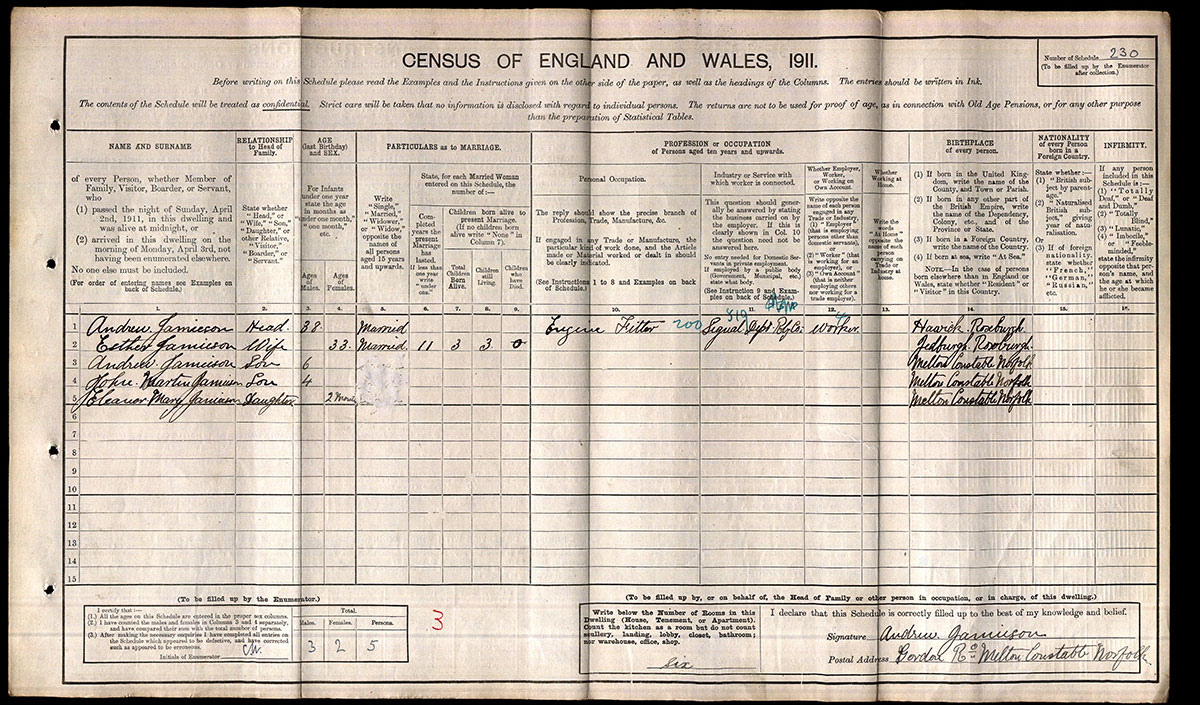 CENSUS OF ENGLAND AND WALES, 1911.
Number of Schedule 230
(To be filled up by the Enumerator
after collection.)
Before writing on this Schedule please read the Examples and the Instructions given on the other side of the paper, as well as the headings of the Columns. The entries should be written in Ink.
The contents of the Schedule will be treated as confidential. Strict care will be taken that no information is disclosed with regard to individual persons. The returns are not to be used for proof of age, as in connection with Old Age Pensions, or for any other purpose
than the preparation of Statistical Tables.
NAME AND SURNAME
of every Person, whether Member of
Family, Visitor, Boarder, or Servant,
who
(1) passed the night of Sunday, April
2nd, 1911, in this dwelling and
was alive at midnight, or
(2) arrived in this dwelling on the
morning of Monday, April 3rd, not
having been enumerated elsewhere.
No one else must be included.
(For order of entering names see Examples on
back of Schedule.)
1.
RELATIONSHIP
to Head of
Family.
State whether
"Head," or
"Wife," "Son,"
"Daughter," or
other Relative,
"Visitor,"
"Boarder," or
"Servant."
2.
AGE
(last Birthday)
and SEX.
For Infants
under one year
state the age
in months as
"under one month,"
"one month,"
etc.
Ages
of
Males.
Ages
of
Females.
3.
4.
PARTICULARS as to MARRIAGE.
Write
"Single,"
"Married,"
"Widower,"
or "Widow,"
opposite the
names of all
persons
aged 15 years
and upwards.
5.
State, for each Married Woman
entered on this Schedule, the
number of:—
Completed
years the
present
Marriage
has
lasted.
If less than
one year
write
"under
one."
6.
Children born alive to
present Marriage.
(If no children born
alive write "None" in
Column 7).
Total
Children
Born
Alive.
7.
Children
still
Living.
8.
Children
who
have
Died.
9.
PROFESSION or OCCUPATION
of Persons aged ten years and upwards.
Personal Occupation.
The reply should show the precise branch of
Profession, Trade, Manufacture, &c.
If engaged in any Trade or Manufacture, the
particular kind of work done, and the Article
made or Material worked or dealt in should
be clearly indicated.
(See Instructions 1 to 8 and Examples on back
of Schedule.)
10.
Industry or Service with
which worker is connected.
This question should generally
be answered by stating
the business carried on by
the employer. If this is
clearly shown in Col. 10
the question need not be
answered here.
No entry needed for Domestic Servants
in private employment.
If employed by a public body
(Government, Municipal, etc.)
state what body.
(See Instruction 9 and Examples
on back of Schedule.)
11.
Whether Employer,
Worker, or
Working on
Own Account.
Write opposite the
name of each person
engaged in any
Trade or Industry,
(1) "Employer"
(that is employing
persons other than
domestic servants),
or
(2) "Worker" (that
is working for an
employer), or
(3) "Own Account"
(that is neither
employing others
nor working for a
trade employer).
12.
Whether
Working at
Home.
Write the
words
"At Home"
opposite the
name of each
person
carrying on
Trade or
Industry at
home.
13.
BIRTHPLACE
of every person.
(1) If born in the United Kingdom,
write the name of the
County, and Town or Parish.
(2) If born in any other part of
the British Empire, write
the name of the Dependency,
Colony, etc., and of the
Province or State.
(3) If born in a Foreign Country,
write the name of the Country.
(4) If born at sea, write "At Sea."
NOTE.—In the case of persons
born elsewhere than in England or
Wales, state whether "Resident" or
"Visitor" in this Country.
14.
NATIONALITY
of every Person
born in a
Foreign Country.
State whether:—
(1) "British subject
by parentage."
(2) "Naturalised
British
subject,"
giving
year of naturalisation.
Or
(3) If of foreign
nationality,
state whether
"French,"
"German,"
"Russian,"
etc.
15.
INFIRMITY.
If any person
included in this
Schedule is:—
(1) "Totally
Deaf," or "Deaf
and Dumb,"
(2) "Totally
Blind,"
(3) "Lunatic,"
(4) "Imbecile,"
or "Feeble-minded,"
state the infirmity
opposite that person's
name, and
the age at which
he or she became
afflicted.
16.
1 Andrew Jamieson Head 38 Married Engine Fitter 200 Signal Dept Rly Co. 519 Worker Hawick Roxburgh
2 Esther Jamieson Wife 33. Married 11 3 3 0 Jedburgh Roxburgh
3 Andrew Jamieson Son 6 Melton Constable Norfolk
4 John Martin Jamieson Son 4 Melton Constable Norfolk
5 Eleanor Mary Jamieson Daughter 2 Months Melton Constable Norfolk
6
7
8
9
10
11
12
13
14
15
(To be filled up by the Enumerator.)
I certify that:—
(1.) All the ages on this Schedule are entered in the proper sex columns.
(2.) I have counted the males and females in Columns 3 and 4 separately,
and have compared their sum with the total number of persons.
(3.) After making the necessary enquiries I have completed all entries on
the Schedule which appeared to be defective, and have corrected
such as appeared to be erroneous.
Initials of Enumerator
Total.
Males. Females. Persons.
3 2 5
3
(To be filled up by, or on behalf of, the Head of Family or other person in occupation, or in charge, of this dwelling.)
Write below the Number of Rooms in this
Dwelling (House, Tenement, or Apartment).
Count the kitchen as a room but do not count
scullery, landing, lobby, closet, bathroom;
nor warehouse, office, shop.
six
I declare that this Schedule is correctly filled up to the best of my knowledge and belief.
Signature Andrew Jamieson
Postal Address Gordon Rd Melton Constable Norfolk